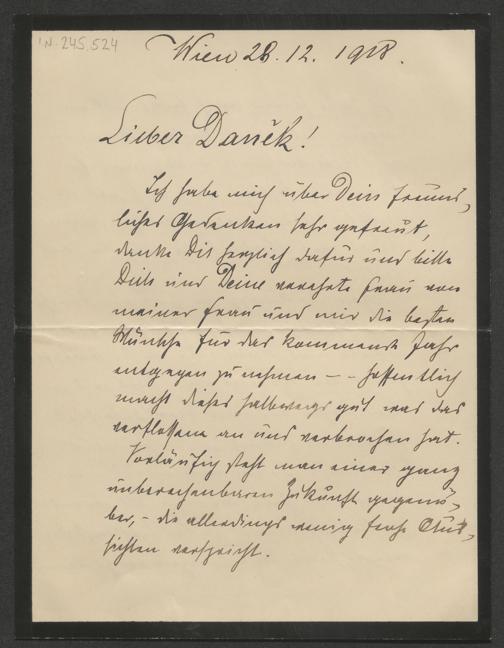 IN. 245.524
Wien 28.12.1918.
Lieber Daněk!
Ich habe mich über Dein freund,
liches Gedenken sehr gefreut,
danke Dir herzlich dafür und bitte
Dich und Deine verehrte Frau von
meiner Frau und mir die besten
Wünsche für das kommende Jahr
entgegen zu nehmen – – hoffentlich
macht dieses halbwegs gut was das
verflossene an uns verbrochen hat.
Vorläufig steht man einer ganz
unberechenbaren Zukunft gegenü-
ber, – die allerdings wenig frohe Aus,
sichten verspricht.